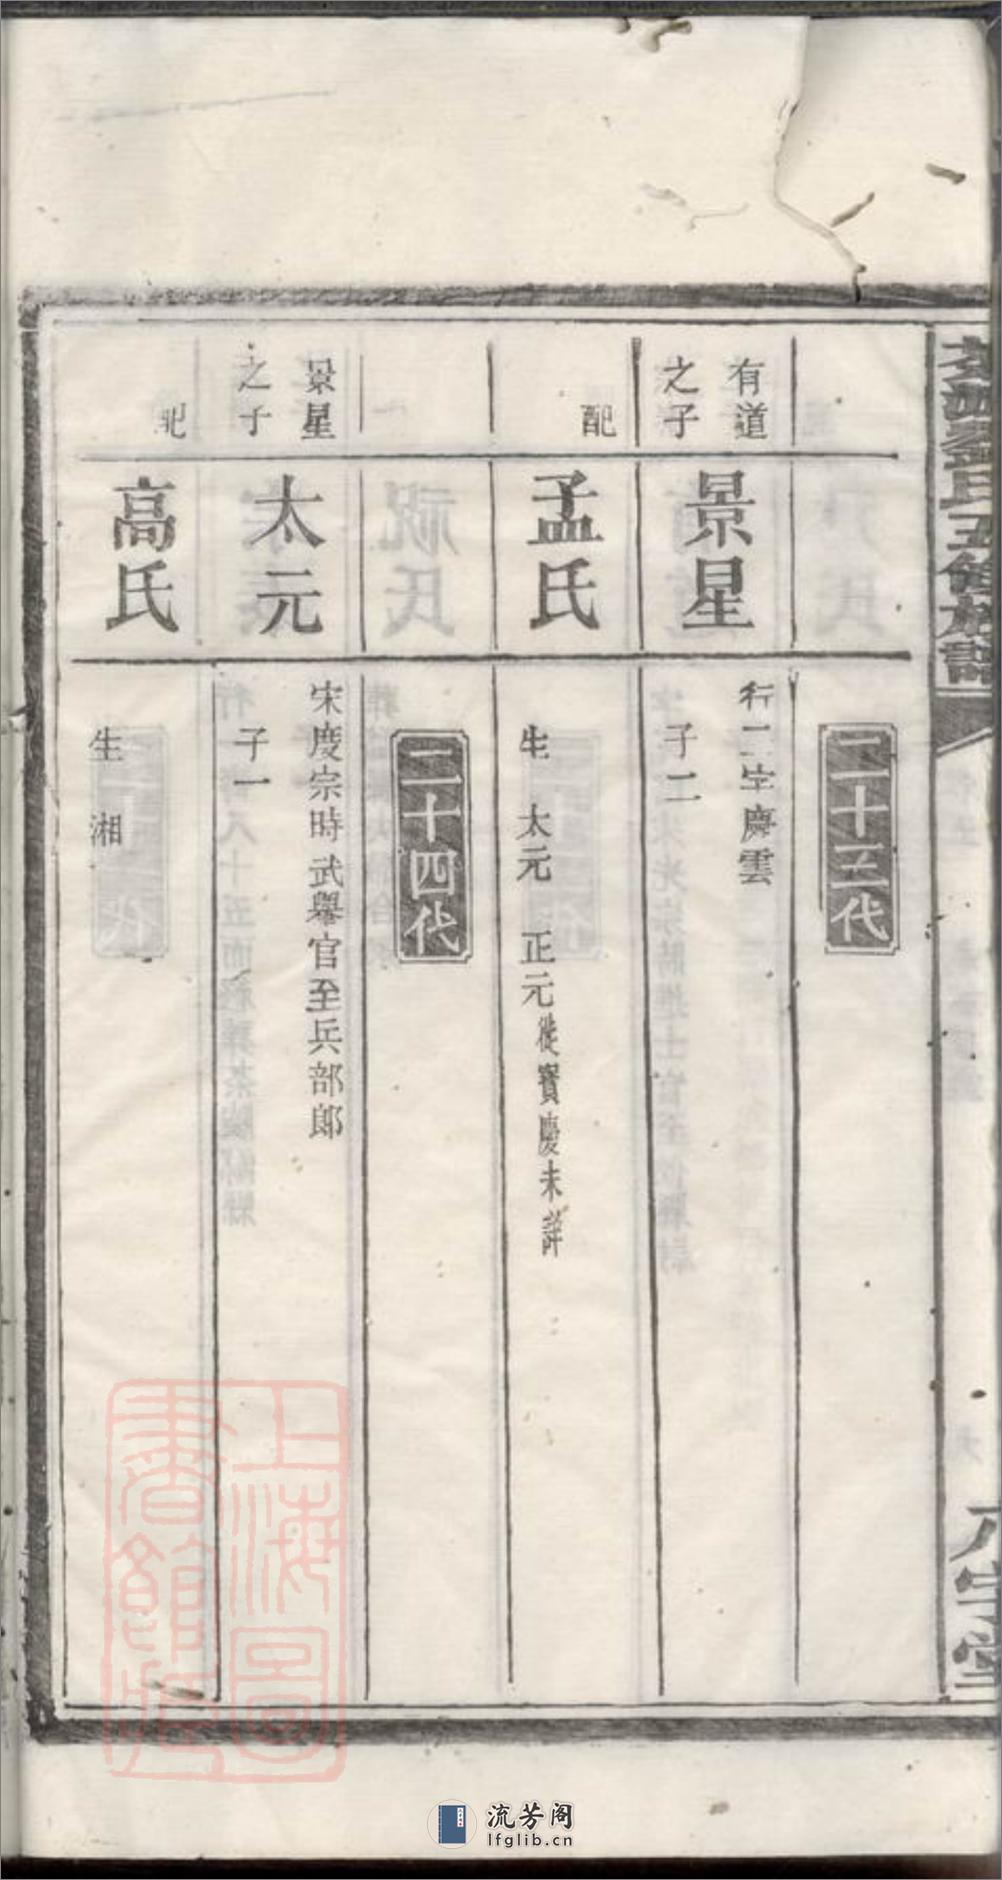 二十三代
有道
之子
景星
行一字慶雲
子二
配
孟氏
生 太元 正元徙寶慶未詳
二十四代
景星
之子
太元
宋度宗時武舉官至兵部郎
子一
配
高氏
生 湘
氏五修族譜
上海圖
書館藏
流芳阁
lfglib.cn